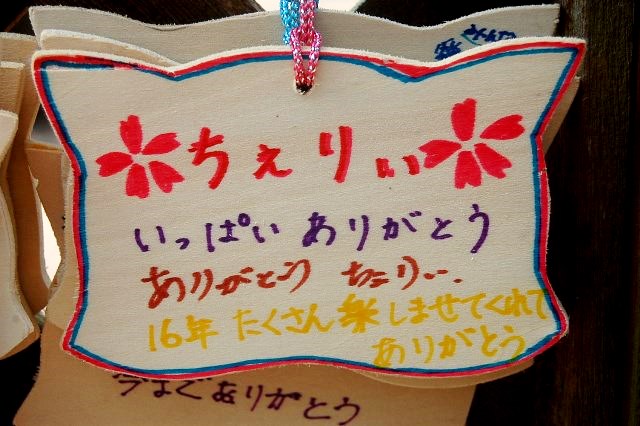 ちぇりぃ
いっぱい ありがとう
ありがとう ちぇりぃ.
16年 たくさん楽しませてくれて
ありがとう
今までありがとう